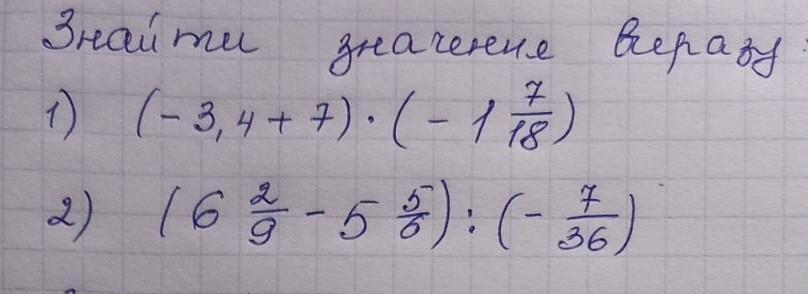 Знайти значення виразу:
1) (-3,4 + 7) · (-1 7/18)
2) (6 2/9 - 5 5/6) : (-7/36)